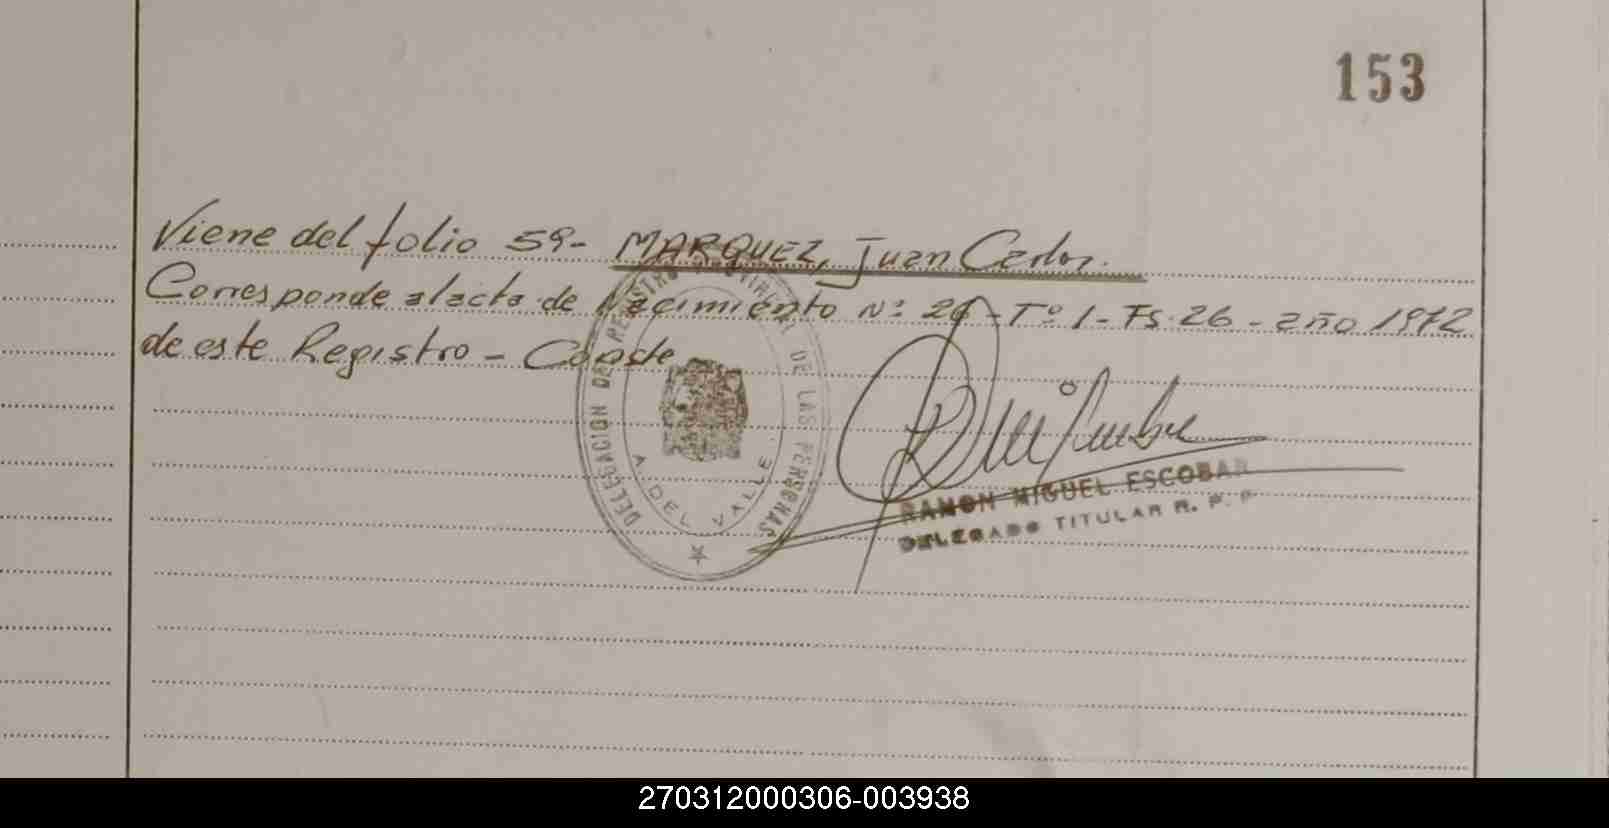 153
Viene del folio 59- MARQUEZ, Juan Carlos.
Corresponde al acta de Nacimiento Nº 26 - Tº 1 - Fs. 26 - año 1972
de este Registro - Conste
DELEGACION DEL REGISTRO DE LAS PERSONAS
A. DEL VALLE
RAMON MIGUEL ESCOBAR
DELEGADO TITULAR R. P. P.
270312000306-003938